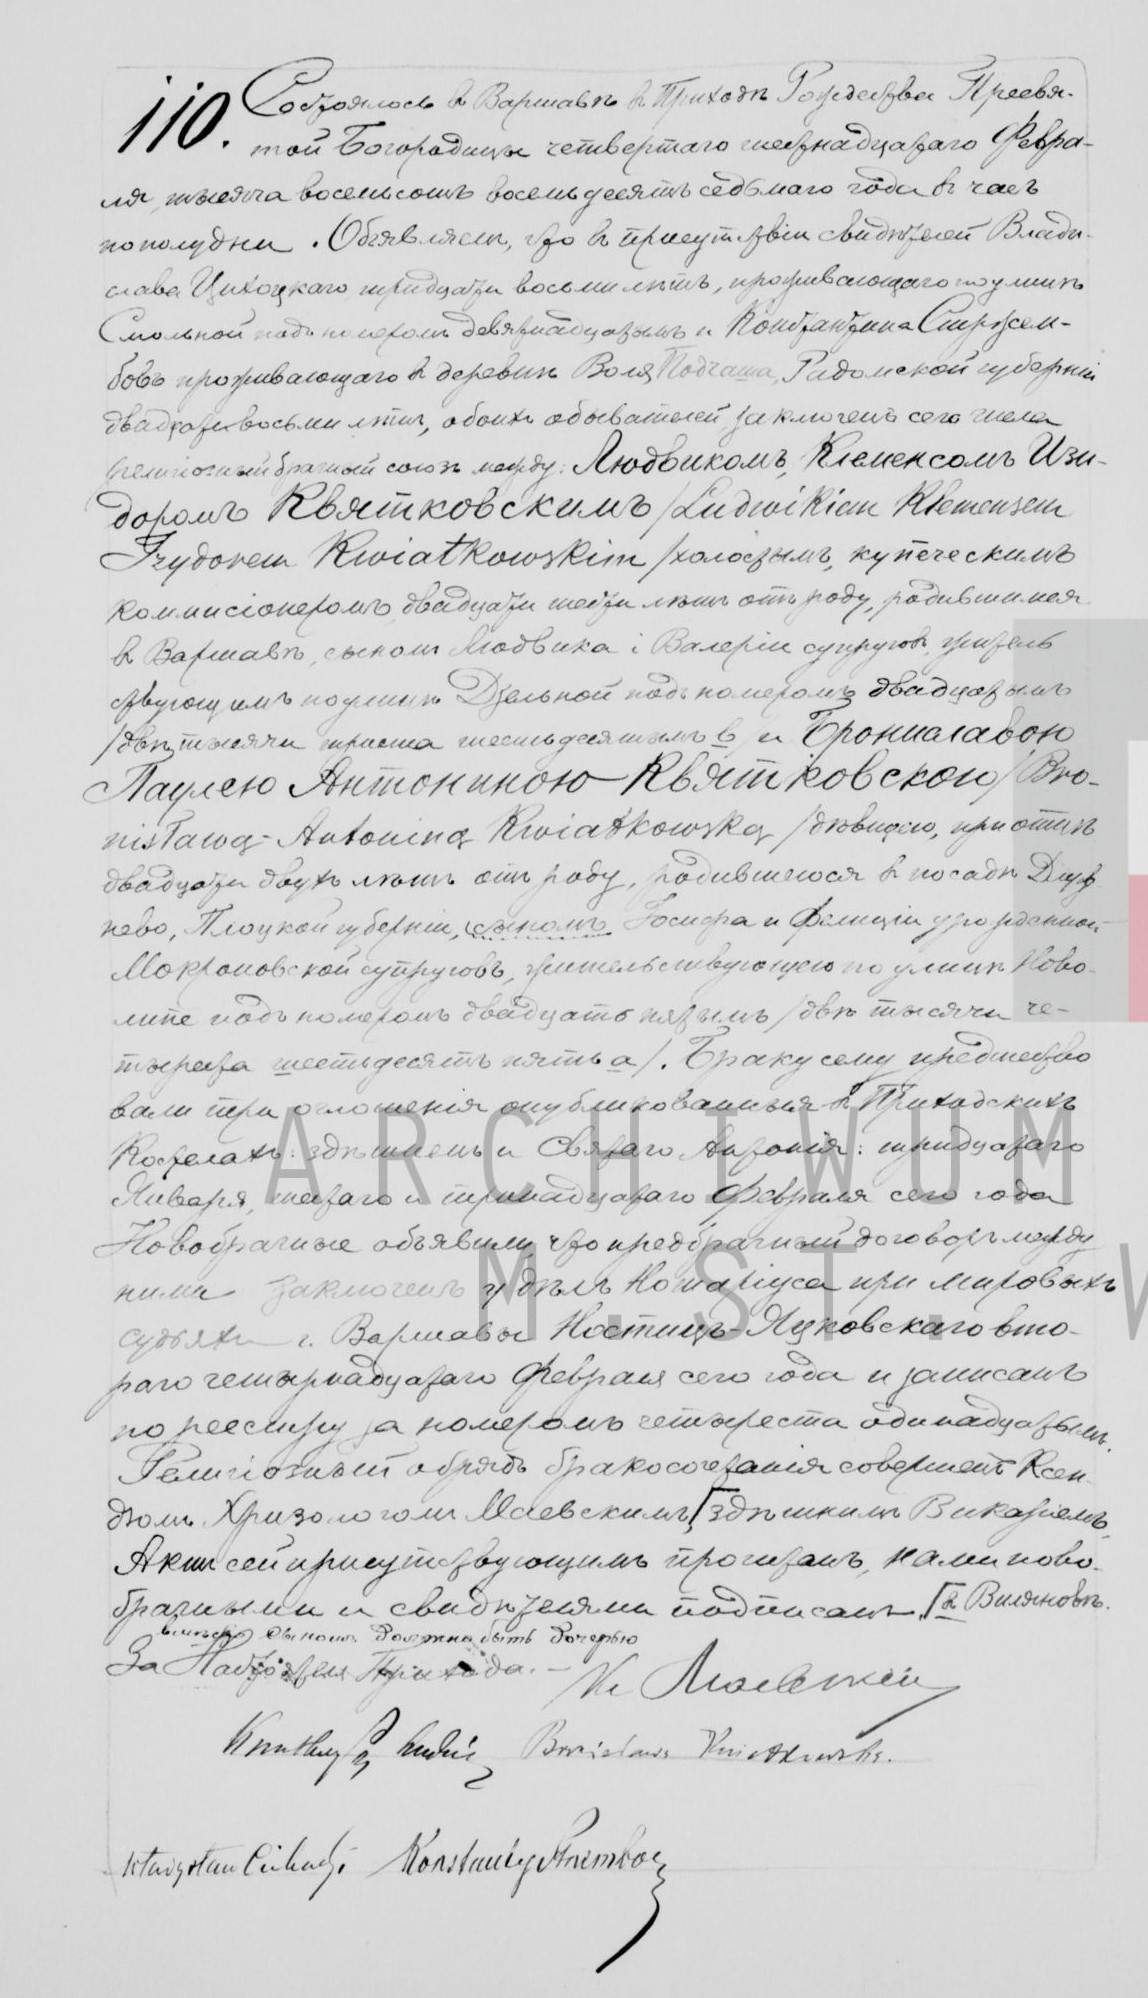 110. Состоялось в Варшавѣ в Приходѣ Рождества Пресвя-
той Богородицы четвертаго шестнадцатаго Февра-
ля, тысяча восемьсотъ восемьдесятъ седьмаго года в часъ
пополудни. Объявляемъ, что въ присутствіи свидѣтелей Влади-
слава Цихоцкаго тридцати восьми лѣтъ, проживающаго по улицѣ
Смольной подъ номеромъ девятнадцатымъ и Константина Стржем-
бошъ проживающаго в деревнѣ Воля Подчаша, Радомской губерніи
двадцати восьми лѣтъ, обоихъ обывателей, заключенъ сего числа
религіозный брачный союзъ между: Людвикомъ, Клеменсомъ Изи-
доромъ Квятковскимъ /Ludwikiem Klemensem
Izydorem Kwiatkowskim/ холостымъ, купеческимъ
коммисіонеромъ двадцати шести лѣтъ отъ роду, родившимся
в Варшавѣ, сыномъ Людвика і Валеріи супруговъ, житель
ствующимъ по улицѣ Дзельной подъ номеромъ двадцатымъ
/двѣ тысячи триста шестьдесятымъ в/ и Брониславою
Паулею Антониною Квятковскою /Bro-
nisławą Antoniną Kwiatkowską/ дѣвицею, при отцѣ
двадцати двухъ лѣтъ отъ роду, родившеюся в посадѣ
Плоцкой губерніи, сыномъ Іосифа и Фелиціи урожденной
Мокроновской супруговъ, жительствующею по улицѣ Ново-
липе подъ номеромъ двадцать пятымъ /двѣ тысячи че-
тыреста шестьдесятъ пять а/. Браку сему предшество
вали три оглашенія опубликованныя в Приходскихъ
Костелахъ: здѣшнемъ и Святаго Антонія: тридцатаго
Января, шестаго и тринадцатаго Февраля сего года
Новобрачные объявили, что предбрачный договоръ между
ними заключенъ у дѣлъ Нотаріуса при мировыхъ
судьяхъ г. Варшавы Ностицъ-Яцковскаго вто-
раго четырнадцатаго Февраля сего года и записанъ
по реестру за номеромъ четыреста одинадцатымъ.
Религіозный обрядъ бракосочетанія совершенъ Ксен-
дзомъ Хризологомъ Маевскимъ, здѣшнимъ Викаріемъ,
Актъ сей присутствующимъ прочитанъ, нами ново-
брачными и свидѣтелями подписанъ. в Виляновѣ.
вмѣсто сыномъ должно быть дочерью
За Настоятеля Прихода.
Маевскій
Bronisława Kwiatkowska.
Władysław Cichocki Konstanty Strzembosz